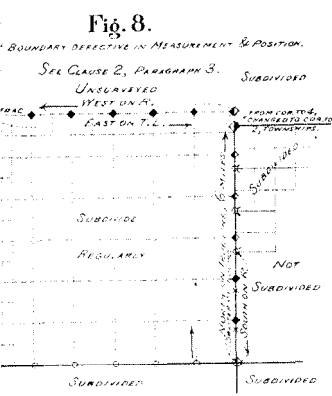 Fig. 8.
BOUNDARY DEFECTIVE IN MEASUREMENT & POSITION.
SEE CLAUSE 2, PARAGRAPH 3.
SUBDIVIDED
UNSURVEYED
WEST ON R.
FRAC.
EAST ON T.L.
FROM COR. TO 4,
CHANGED TO COR. TO
2, TOWNSHIPS.
SUBDIVIDED
SUBDIVIDE
REGULARLY
NOT
SUBDIVIDED
SOUTH ON R.
SUBDIVIDED
SUBDIVIDED